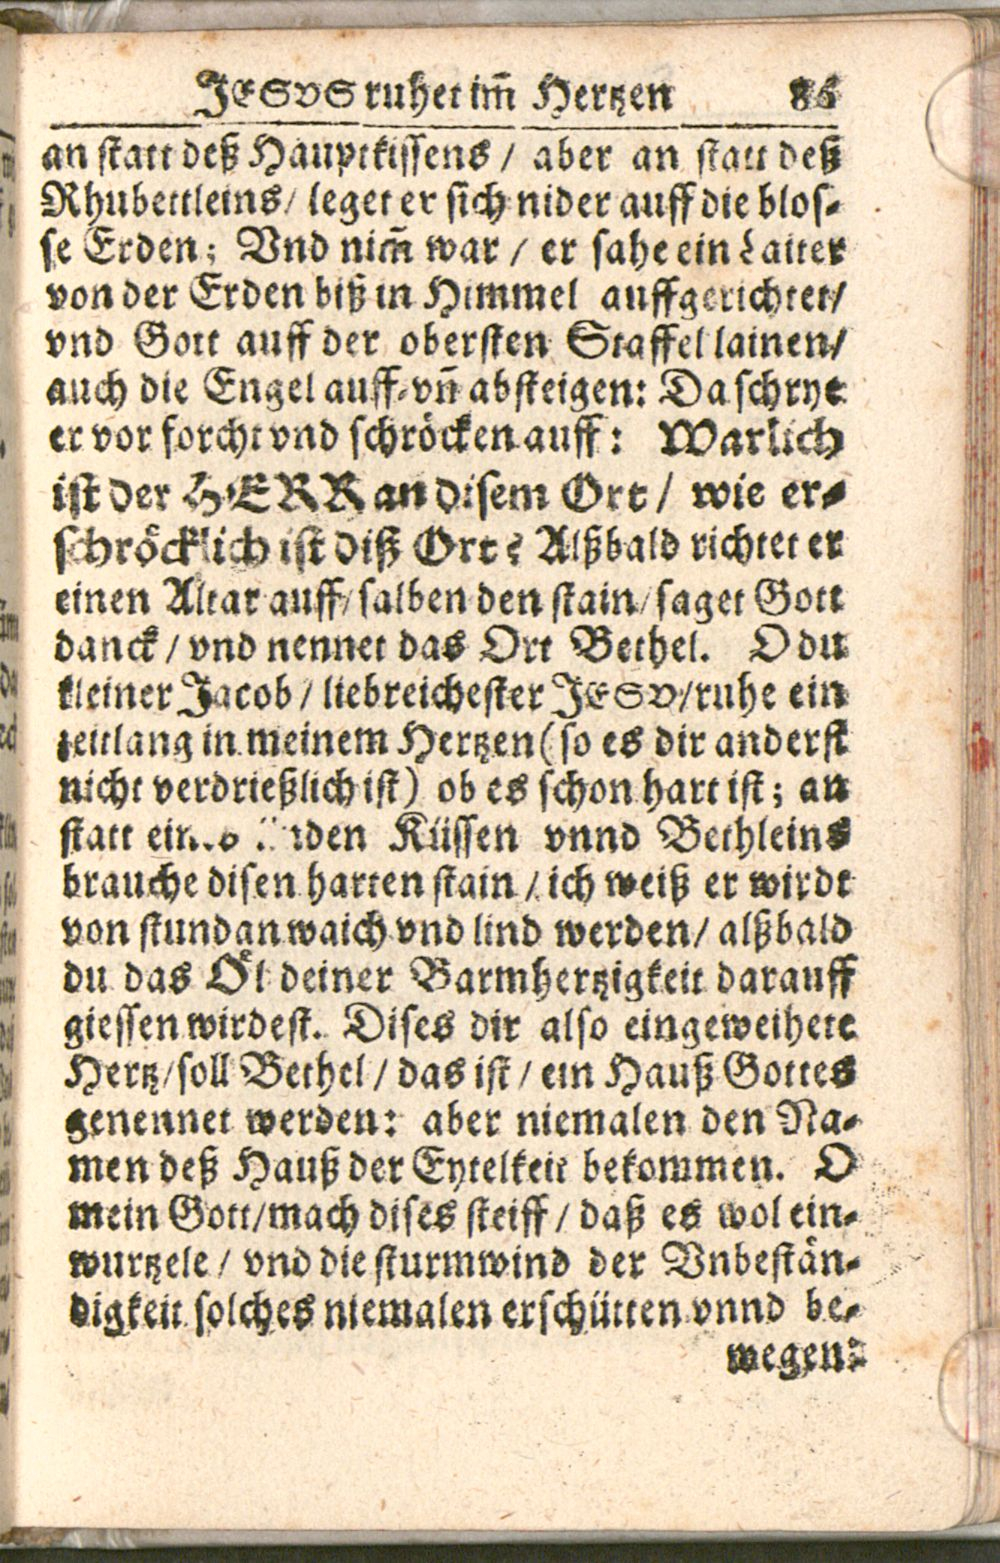 JESVS ruhet im̃ Hertzen 86
an statt deß Hauptkissens / aber an statt deß
Rhubettleins / leget er sich nider auff die blos-
se Erden; Vnd nim̃ war / er sahe ein Laiter
von der Erden biß in Himmel auffgerichtet /
vnd Gott auff der obersten Staffel lainen /
auch die Engel auff-vñ absteigen: Da schrye
er vor forcht vnd schröcken auff: Warlich
ist der HERR an disem Ort / wie er-
schröcklich ist diß Ort? Alßbald richtet er
einen Altar auff / salben den stain / saget Gott
danck / vnd nennet das Ort Bethel. O du
kleiner Jacob / liebreichester JESV / ruhe ein
zeitlang in meinem Hertzen (so es dir anderst
nicht verdrießlich ist) ob es schon hart ist; an
statt Küssen vnnd Bethleins
brauche disen harten stain / ich weiß er wirdt
von stund an waich vnd lind werden / alßbald
du das Öl deiner Barmhertzigkeit darauff
giessen wirdest. Dises dir also eingeweihete
Hertz / soll Bethel / das ist / ein Hauß Gottes
genennet werden: aber niemalen den Na-
men deß Hauß der Eytelkeit bekommen. O
mein Gott / mach dises steiff / daß es wol ein-
wurtzele / vnd die sturmwind der Vnbestän-
digkeit solches niemalen erschütten vnnd be-
wegen: